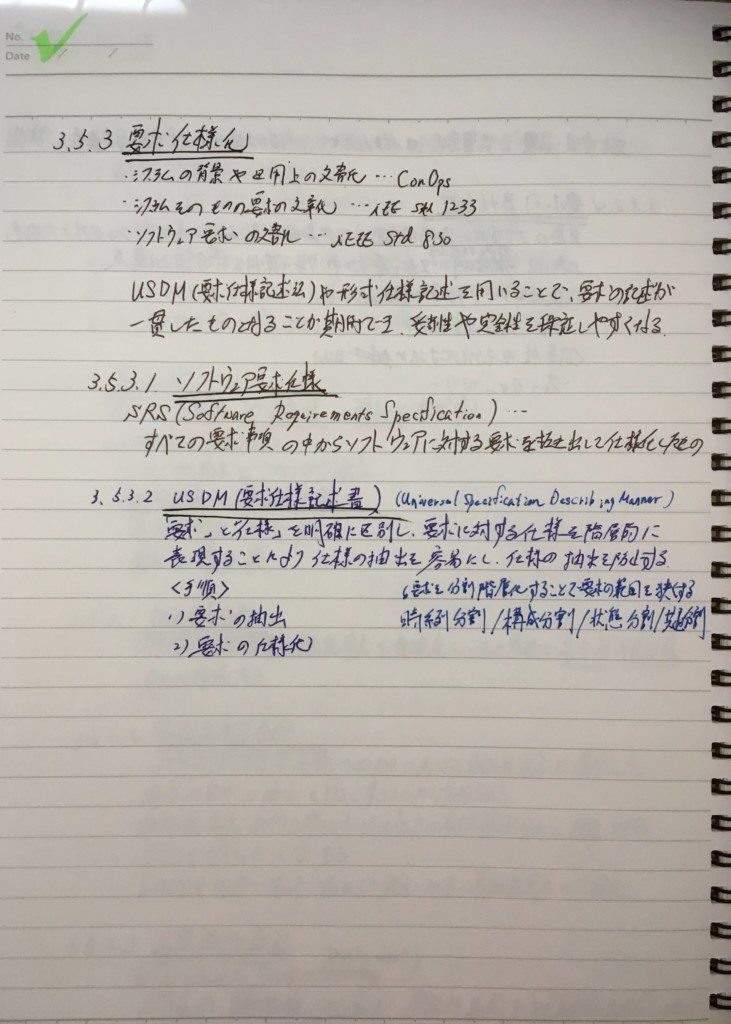 No.
Date
3.5.3 要求仕様化
・システムの背景や運用上の文書化 … ConOps
・システムそのものの要求の文章化 … IEEE Std 1233
・ソフトウェア要求の文書化 … IEEE Std 830
USDM(要求仕様記述法)や形式仕様記述を用いることで、要求の記述が
一貫したものになることが期待でき、妥当性や完全性を保証しやすくなる。
3.5.3.1 ソフトウェア要求仕様
SRS(Software Requirements Specification) …
すべての要求事項の中からソフトウェアに対する要求を抜き出して仕様化したもの
3.5.3.2 USDM(要求仕様記述書) (Universal Specification Describing Manner)
「要求」と「仕様」を明確に区別し、要求に対する仕様を階層的に
表現することにより仕様の抽出を容易にし、仕様の抽出を防止する
<手順> 要求を分割階層化することで要求の範囲を狭くする
1) 要求の抽出 時系列分割/構成分割/状態分割/共通分割
2) 要求の仕様化